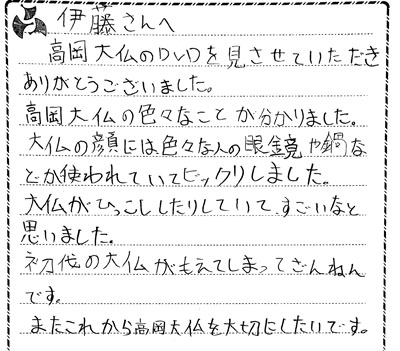 伊藤さんへ
高岡大仏のDVDを見させていただき
ありがとうございました。
高岡大仏の色々なことが分かりました。
大仏の顔には色々な人の眼鏡や鍋な
どが使われていてビックリしました。
大仏がひっこししたりしていて、すごいなと
思いました。
初代の大仏がもえてしまってざんねん
です。
またこれから高岡大仏を大切にしたいです。